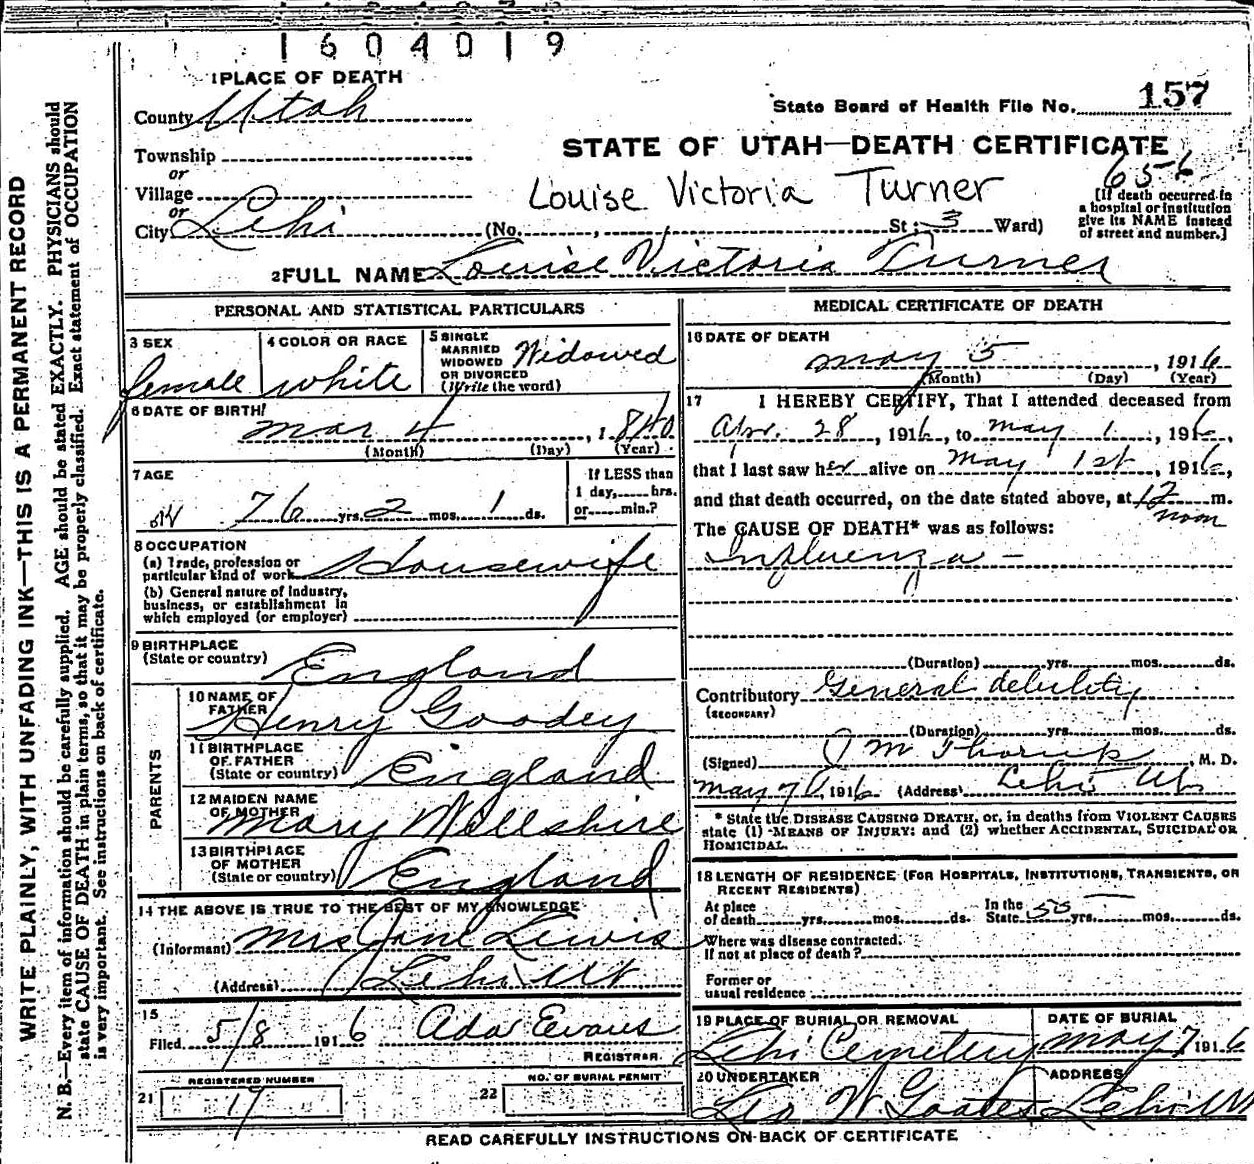 1604019
1 PLACE OF DEATH
County Utah
State Board of Health File No. 157
Township
or
STATE OF UTAH—DEATH CERTIFICATE
656
Village
or
Louise Victoria Turner
City Lehi (No. , St; 3 Ward)
[If death occurred in
a hospital or institution
give its NAME instead
of street and number.]
2 FULL NAME Louise Victoria Turner
PERSONAL AND STATISTICAL PARTICULARS
3 SEX
female
4 COLOR OR RACE
white
5 SINGLE
MARRIED
WIDOWED
OR DIVORCED
(Write the word)
Widowed
6 DATE OF BIRTH
Mar 4, 1840
(Month) (Day) (Year)
7 AGE
76 yrs. 2 mos. 1 ds.
If LESS than
1 day, hrs.
or min.?
8 OCCUPATION
(a) Trade, profession or
particular kind of work Housewife
(b) General nature of Industry,
business, or establishment in
which employed (or employer)
9 BIRTHPLACE
(State or country) England
PARENTS
10 NAME OF
FATHER Henry Goodey
11 BIRTHPLACE
OF FATHER
(State or country) England
12 MAIDEN NAME
OF MOTHER Mary Willshire
13 BIRTHPLACE
OF MOTHER
(State or country) England
14 THE ABOVE IS TRUE TO THE BEST OF MY KNOWLEDGE
(Informant) Mrs Jane Lewis
(Address) Lehi Ut
15
Filed 5/8 1916 Ada Evans
REGISTRAR
REGISTERED NUMBER
21 19
NO. OF BURIAL PERMIT
22
MEDICAL CERTIFICATE OF DEATH
16 DATE OF DEATH
May 5, 1916
(Month) (Day) (Year)
17 I HEREBY CERTIFY, That I attended deceased from
Apr. 28, 1916, to May 1, 1916,
that I last saw her alive on May 1st, 1916,
and that death occurred, on the date stated above, at 12 m.
noon
The CAUSE OF DEATH* was as follows:
Influenza -
(Duration) yrs. mos. ds.
Contributory General debility
(SECONDARY)
(Duration) yrs. mos. ds.
(Signed) Thorup, M. D.
May 7, 1916 (Address) Lehi Ut
* State the DISEASE CAUSING DEATH, or, in deaths from VIOLENT CAUSES
state (1) MEANS OF INJURY; and (2) whether ACCIDENTAL, SUICIDAL OR
HOMICIDAL.
18 LENGTH OF RESIDENCE (FOR HOSPITALS, INSTITUTIONS, TRANSIENTS, OR
RECENT RESIDENTS)
At place
of death yrs. mos. ds.
In the
State 55 yrs. mos. ds.
Where was disease contracted.
If not at place of death?
Former or
usual residence
19 PLACE OF BURIAL OR REMOVAL
Lehi Cemetery
DATE OF BURIAL
May 7 1916
20 UNDERTAKER
Leo W Goates
ADDRESS
Lehi Ut
READ CAREFULLY INSTRUCTIONS ON BACK OF CERTIFICATE
WRITE PLAINLY, WITH UNFADING INK—THIS IS A PERMANENT RECORD
N. B.—Every item of information should be carefully supplied. AGE should be stated EXACTLY. PHYSICIANS should
state CAUSE OF DEATH in plain terms, so that it may be properly classified. Exact statement of OCCUPATION
is very important. See instructions on back of certificate.